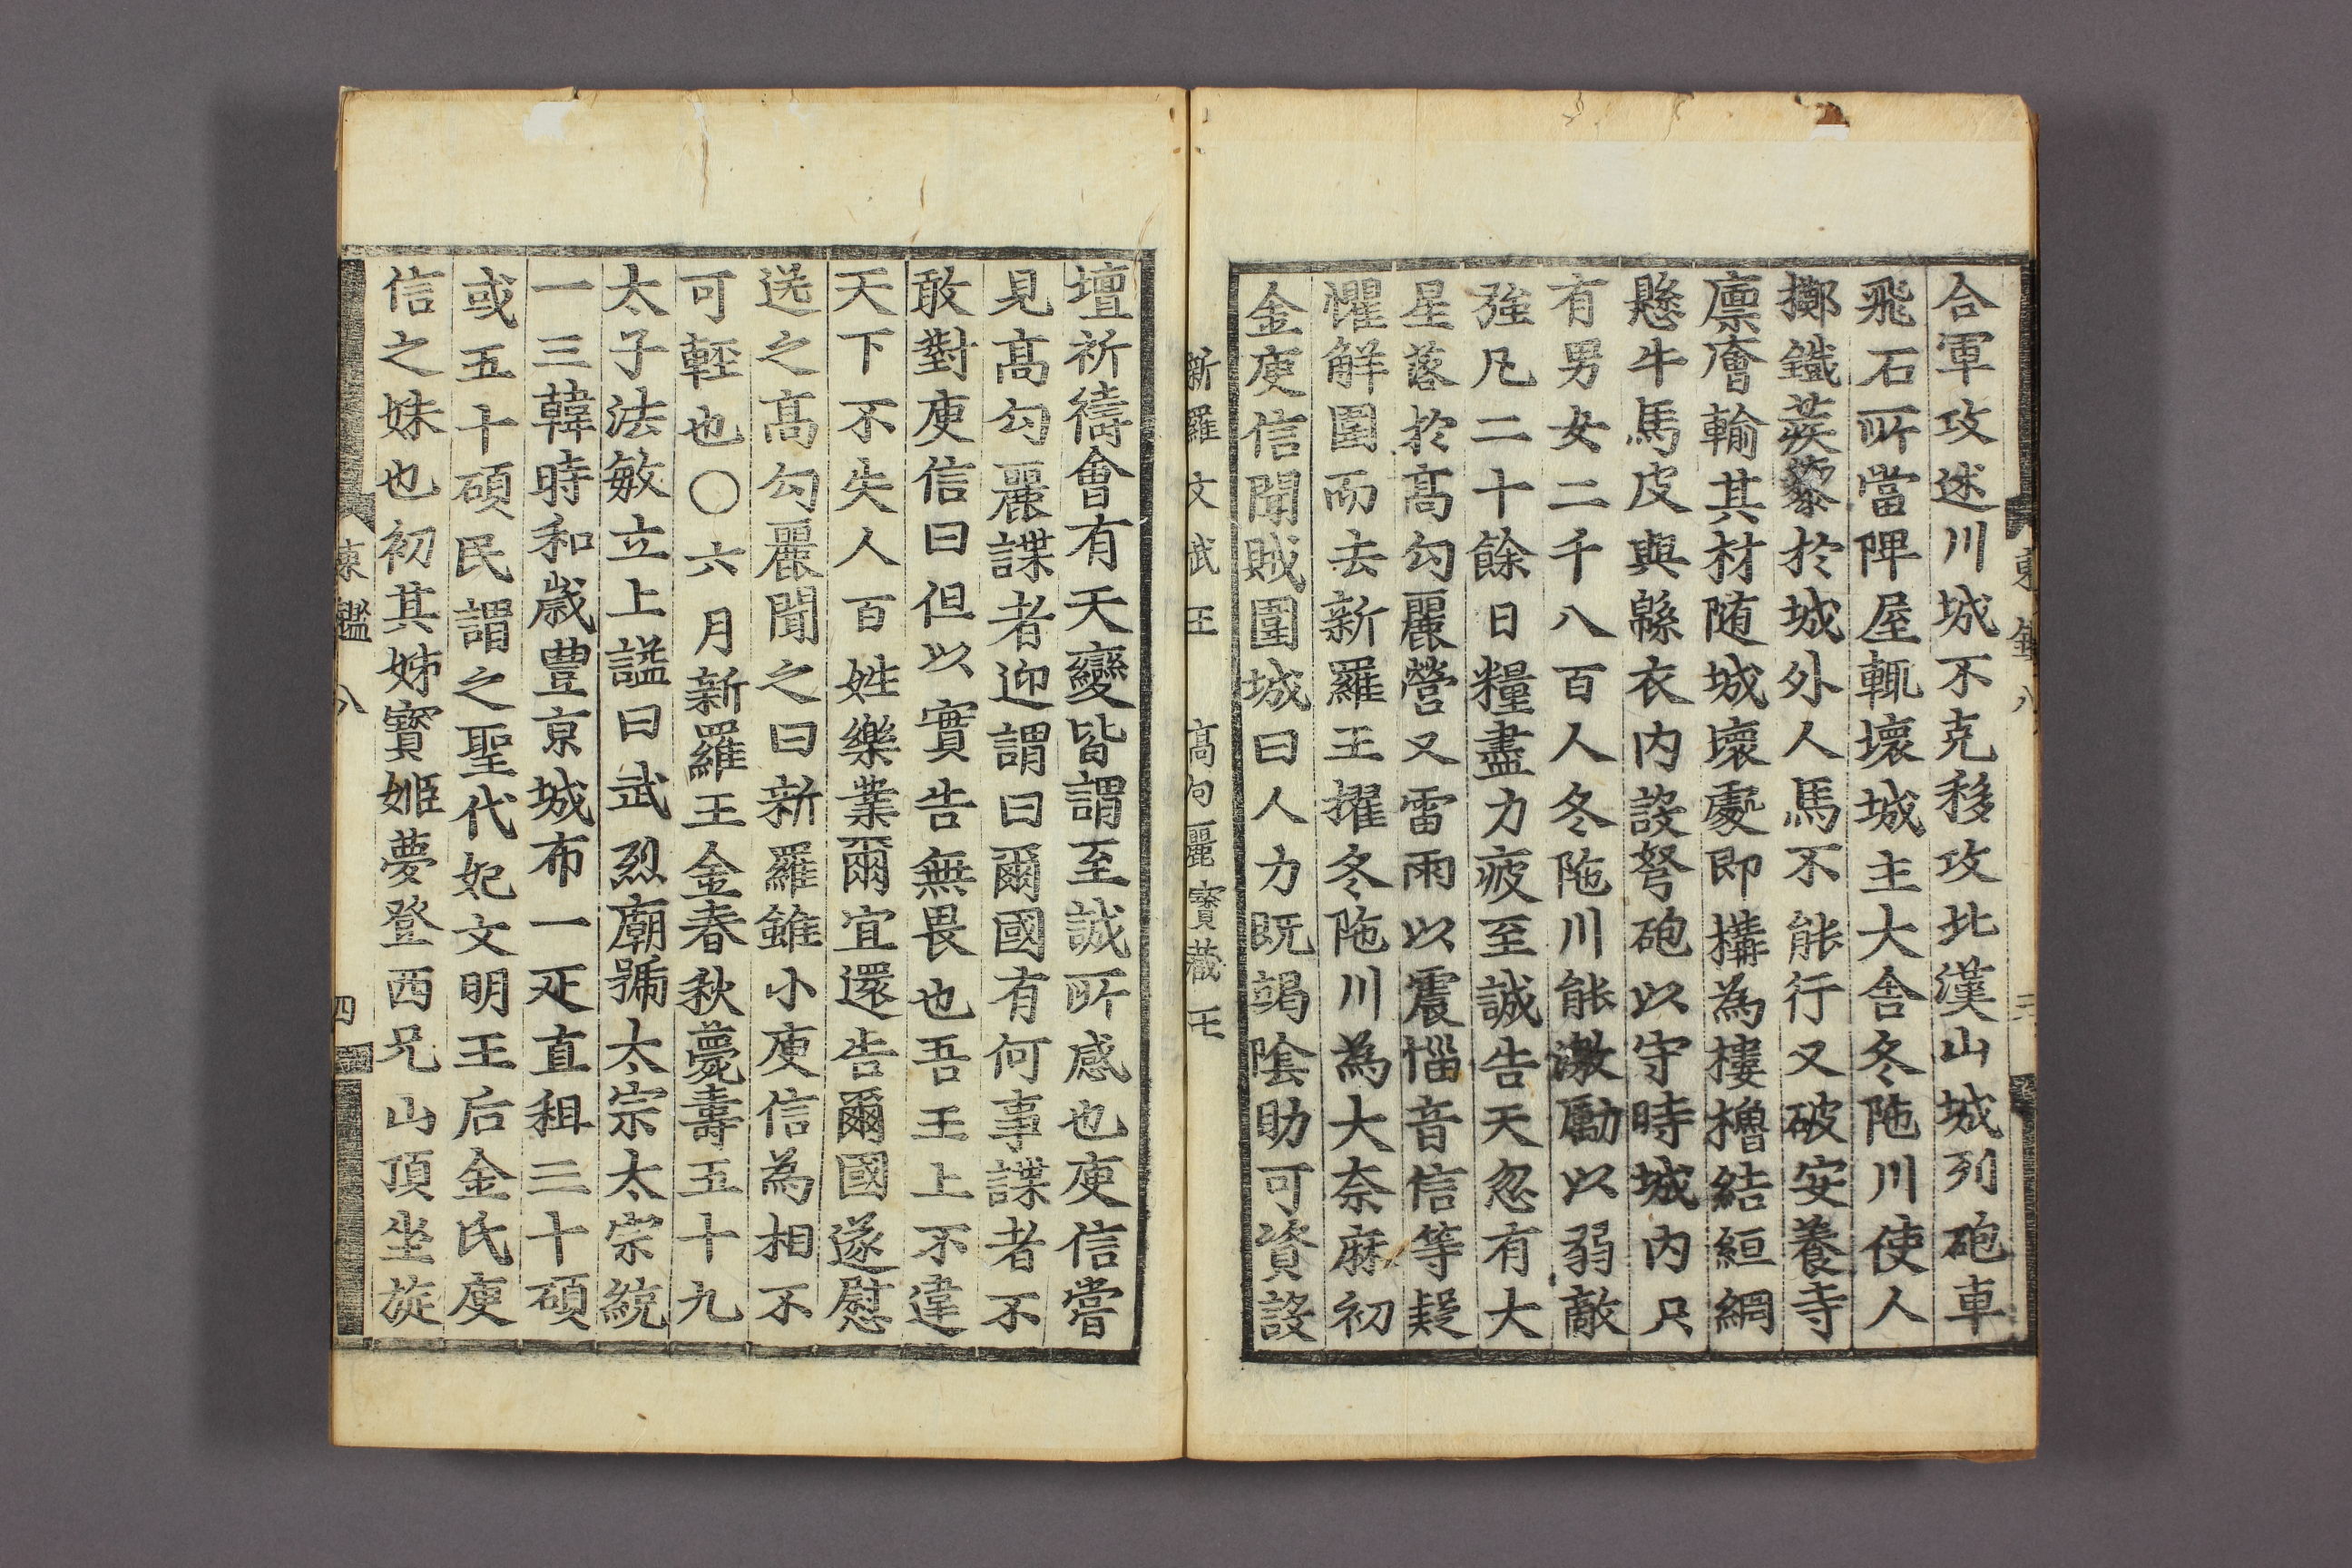 合軍攻述川城不克移攻北漢山城列砲車
飛石所當陴屋輒壞城主大舍冬陁川使人
擲鐵蒺藜於城外人馬不能行又破安養寺
廩廥輸其材随城壞處即搆為樓櫓結絙網
懸牛馬皮與緜衣内設弩砲以守時城内只
有男女二千八百人冬陁川能激勵以弱敵
強凡二十餘日糧盡力疲至誠告天忽有大
星落於髙勾麗營又雷雨以震惱音信等疑
懼解圍而去新羅王擢冬陁川為大奈麻初
金庾信聞賊圍城曰人力既竭陰助可資設
新羅文武王 高句麗寶藏王
壇祈禱會有天變皆謂至誠所感也庾信嘗
見髙勾麗諜者迎謂曰爾國有何事諜者不
敢對庾信曰但以實告無畏也吾王上不違
天下不失人百姓樂業爾宜還告爾國遂慰
送之髙勾麗聞之曰新羅雖小庾信為相不
可輕也○六月新羅王金春秋薨壽五十九
太子法敏立上謚曰武烈廟號太宗太宗統
一三韓時和歲豊京城布一疋直租三十碩
或五十碩民謂之聖代妃文明王后金氏庾
信之妹也初其姊寳姬夢登西兄山頂坐旋
東鑑 八 四